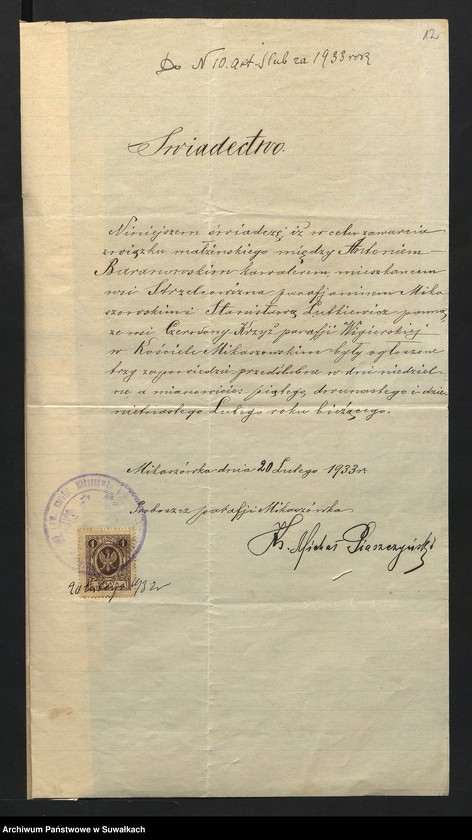 12
Do N 10. akt. Slub za 1933 rok
Swiadectwo.
Niniejszem świadczę iż w celu zawarcia
związku małżeńskiego między Antonim
Baranowskim kawalerem, mieszkańcem
wsi Strzelcowizna parafjaninem Mika
szowskim i Stanisławą Lutkiewicz panną
ze wsi Czerwony Krzyż parafji Wigierskiej
w Kościele Mikaszowskim były ogłoszone
trzy zapowiedzie przedślubne w dni niedziel-
ne a mianowicie: piątego, dwunastego i dzie
więtnastego Lutego roku bieżącego.
Mikaszówka dnia 20 Lutego 1933 r.
Proboszcz parafji Mikaszówka
Ks. Michał Piaszczyński
1 1
20 Lutego
Archiwum Państwowe w Suwałkach